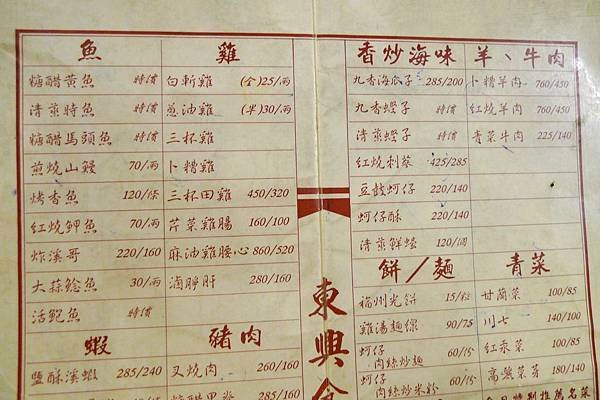 魚
糖醋黃魚 時價
清蒸時魚 時價
糖醋馬頭魚 時價
煎燒山鰻 70/兩
烤香魚 120/條
紅燒鯽魚 70/兩
炸溪哥 220/160
大蒜鯰魚 30/兩
活鮑魚 時價
蝦
鹽酥溪蝦 285/240
雞
白斬雞 (全)25/兩
蔥油雞 (半)30/兩
三杯雞
卜糟雞
三杯田雞 450/320
芹菜雞腸 160/100
麻油雞腰心 860/520
滷脖肝 280/160
豬肉
叉燒肉 260/160
東興
香炒海味
九香海瓜子 285/200
九香蟶子 時價
清蒸蟶子 時價
紅燒刺蔘 425/285
豆鼓蚵仔 220/140
蚵仔酥 220/140
清蒸鮮蟳 120/個
餅/麵
福州光餅 15/粒
雞湯麵線 90/75
蚵仔肉絲炒麵 60/份
蚵仔肉絲炒米粉 60/份
羊、牛肉
卜糟羊肉 760/450
紅燒羊肉 760/450
青菜牛肉 225/140
青菜
甘蘭菜 100/85
川七 140/100
紅菜 100/85
高麗菜芽 180/140